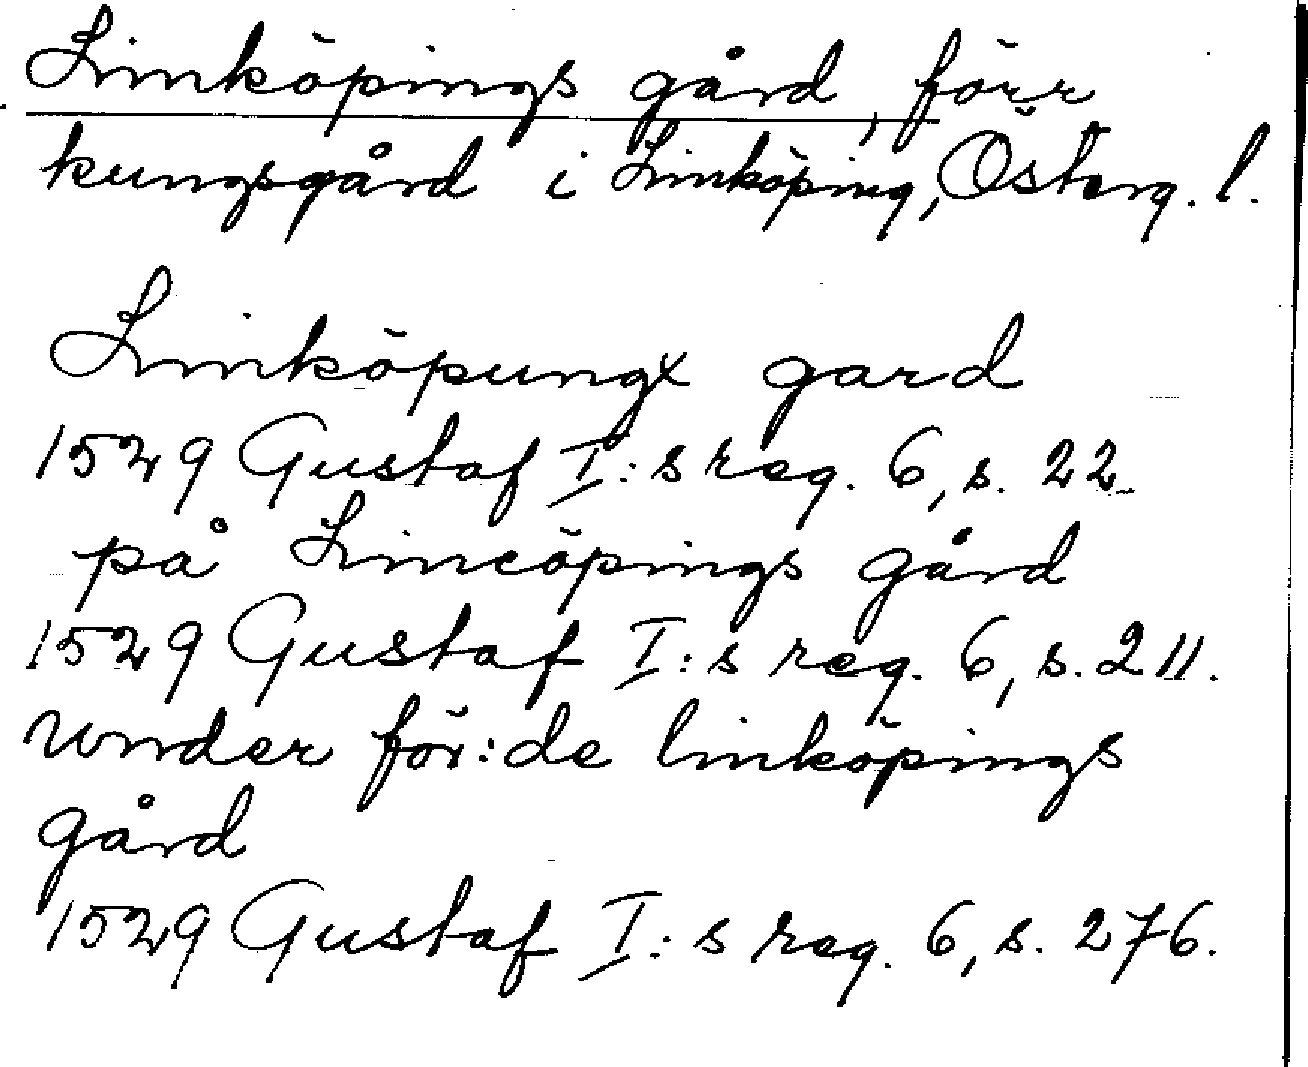 Linköpings gård, förr
kungsgård i Linköping, Österg. l.
Linköpungx gard
1529 Gustaf I:s reg. 6, s. 22
på Lincöpings gård
1529 Gustaf I:s reg. 6, s. 211.
Wnder för:de linköpings
gård
1529 Gustaf I:s reg. 6, s. 276.